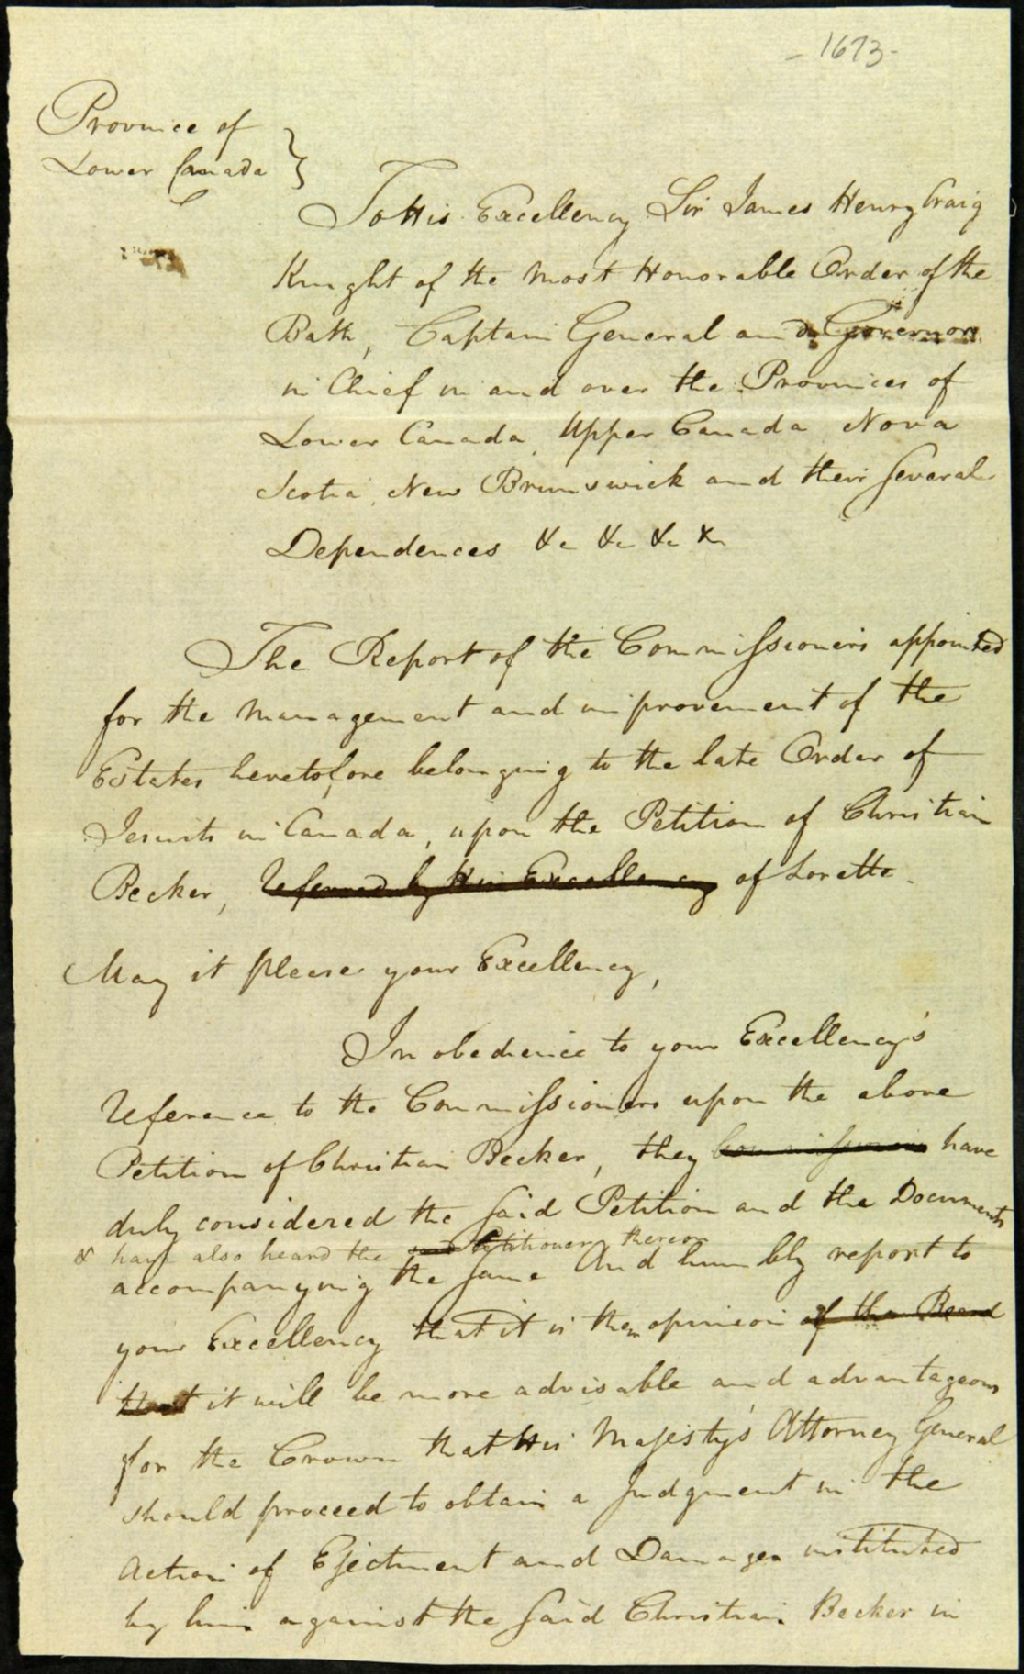 - 1673 -
Province of
Lower Canada }
To His Excellency Sir James Henry Craig
Knight of the Most Honorable Order of the
Bath, Captain General and Governor
in Chief in and over the Provinces of
Lower Canada, Upper Canada, Nova
Scotia, New Brunswick and their several
Dependences &c &c &c &c
The Report of the Commissioners appointed
for the Management and improvement of the
Estates heretofore belonging to the late Order of
Jesuits in Canada, upon the Petition of Christian
Becker, Referred by His Excellency of Lorette.
May it please your Excellency,
In obedience to your Excellency's
Reference to the Commissioners upon the above
Petition of Christian Becker, they Commissioners have
duly considered the said Petition and the Documents
& have also heard the said Petitioner thereon
accompanying the same And humbly report to
your Excellency that it is their opinion of the Board
that it will be more advisable and advantageous
for the Crown that His Majesty's Attorney General
should proceed to obtain a Judgment in the
Action of Ejectment and Damages instituted
by him against the said Christian Becker in